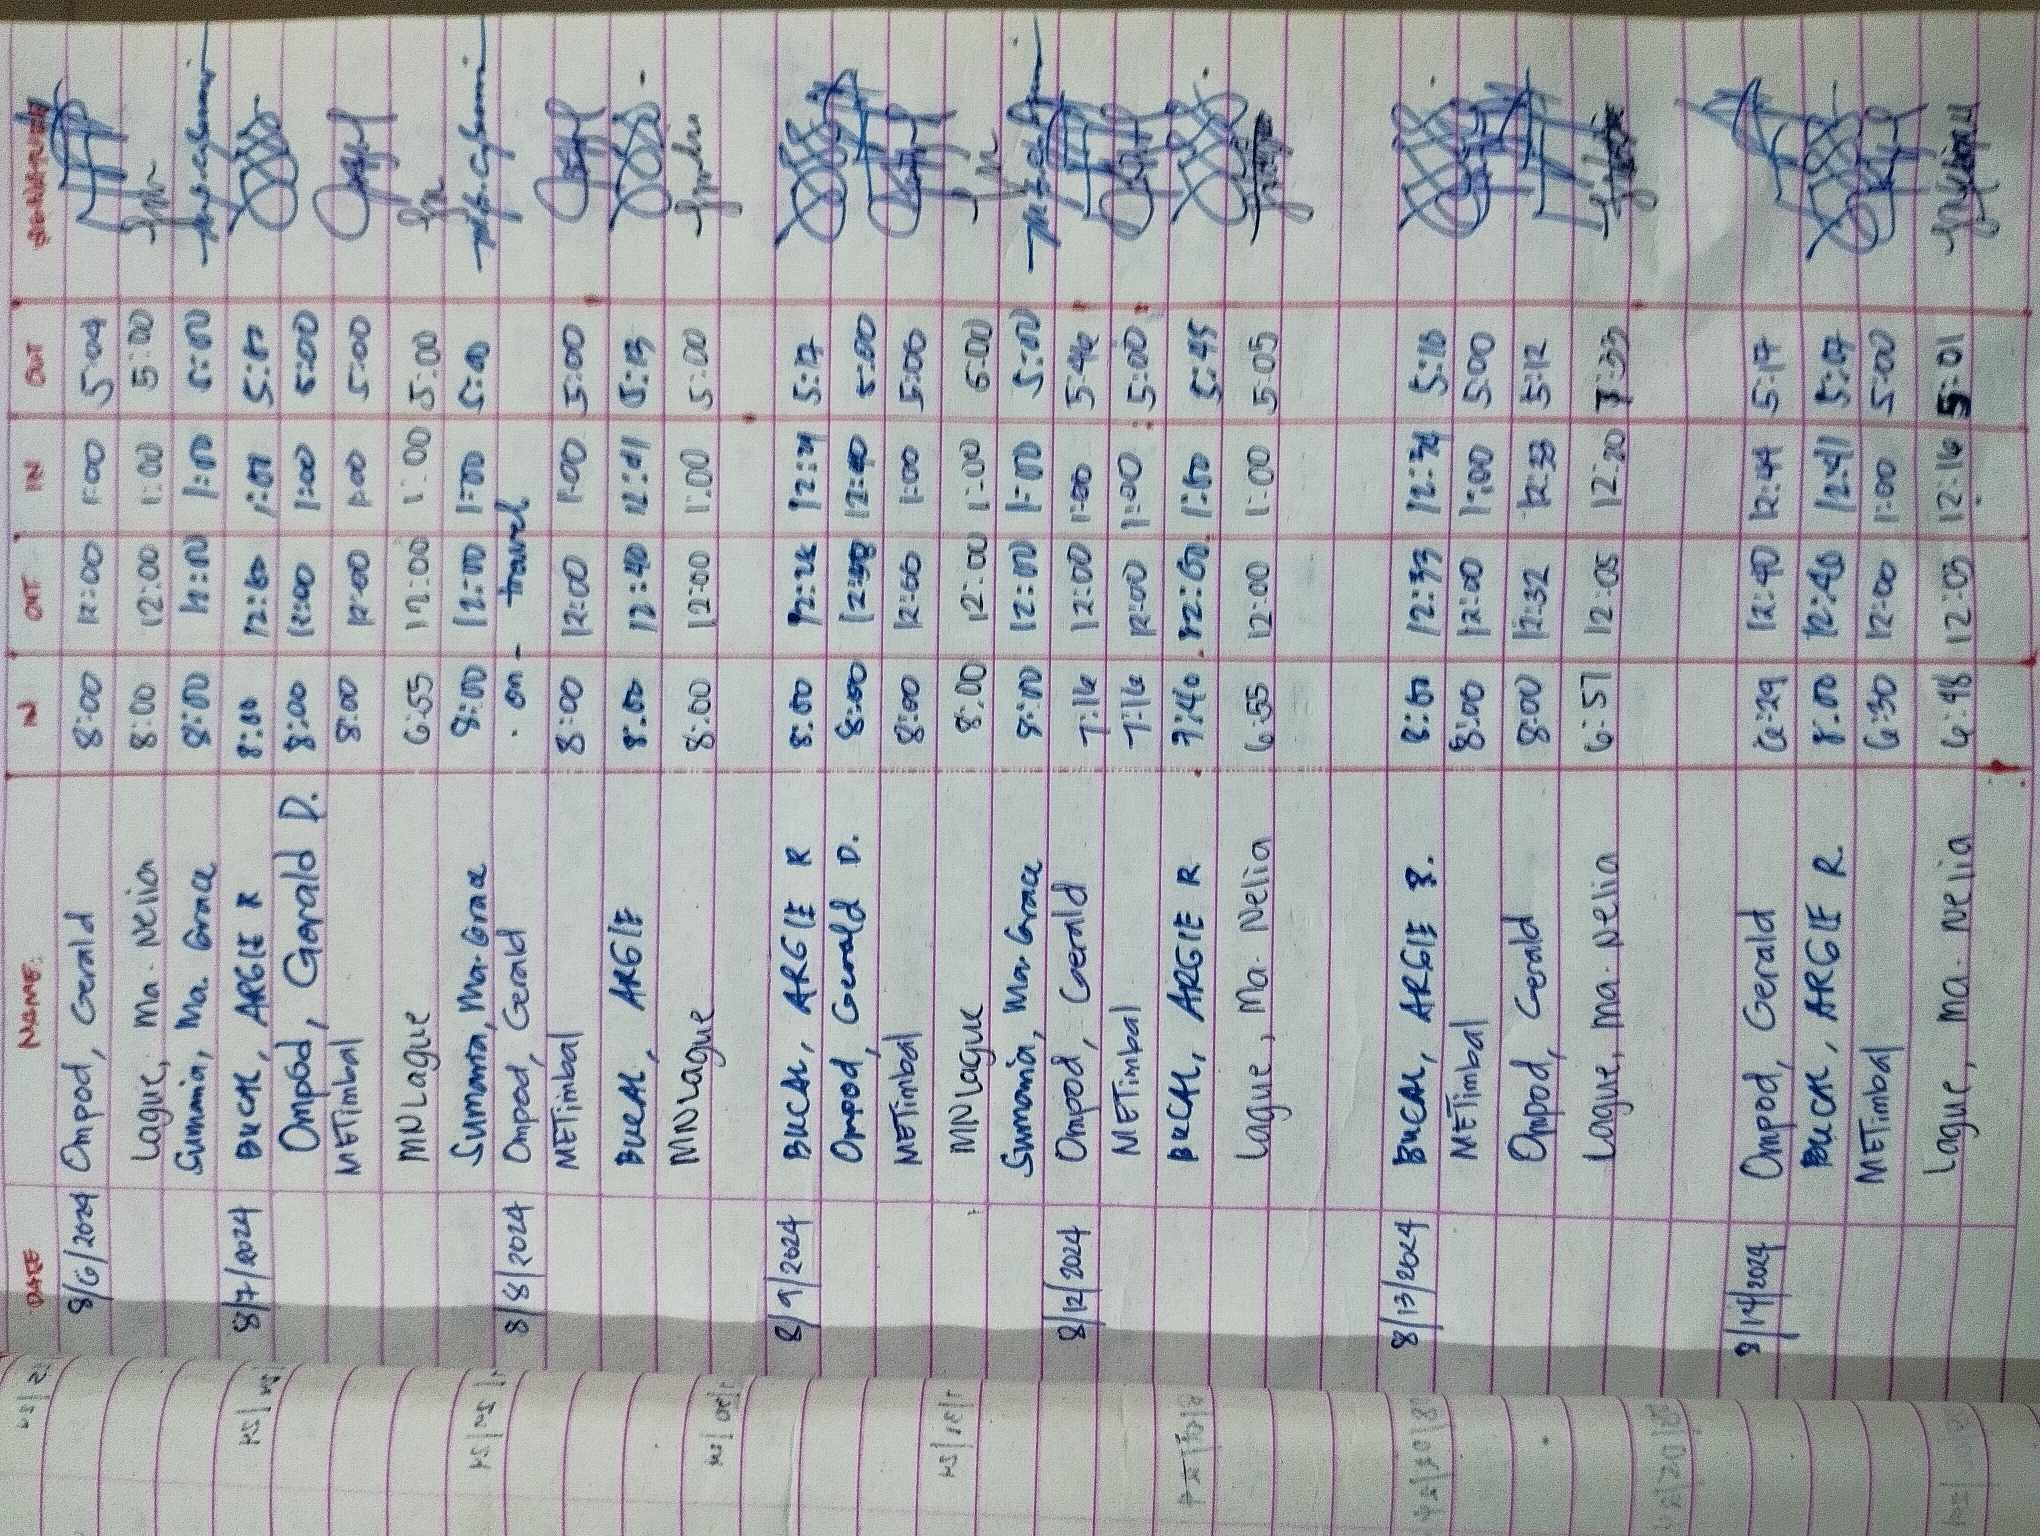 DATE NAME: IN OUT IN OUT SIGNATURE
8/6/2024 Ompod, Gerald 8:00 12:00 1:00 5:04
Lague, Ma. Nelia 8:00 12:00 1:00 5:00
Sumania, Ma. Grace 8:00 12:00 1:00 5:00
8/7/2024 BUCAL, ARGIE R 8:00 12:00 1:01 5:00
Ompod, Gerald D. 8:00 12:00 1:00 5:00
METimbal 8:00 12:00 1:00 5:00
MNLague 6:55 12:00 1:00 5:00
Sumania, Ma. Grace 8:00 12:00 1:00 5:00
8/8/2024 Ompod, Gerald . on - travel
METimbal 8:00 12:00 1:00 5:00
BUCAL, ARGIE 8:00 12:40 12:41 5:13
MNLague 8:00 12:00 1:00 5:00
8/9/2024 BUCAL, ARGIE R 8:00 12:28 12:29 5:17
Ompod, Gerald D. 8:00 12:40 5:00
METimbal 8:00 12:00 1:00 5:00
MNLague 8:00 12:00 1:00 5:00
Sumania, Ma. Grace 8:00 12:00 1:00 5:00
8/12/2024 Ompod, Gerald 7:16 12:00 1:00 5:46
METimbal 7:16 12:00 1:00 5:00
BUCAL, ARGIE R 7:40 12:00 1:00 5:45
Lague, Ma. Nelia 6:55 12:00 1:00 5:05
8/13/2024 BUCAL, ARGIE 8:00 12:33 12:34 5:18
METimbal 8:00 12:00 1:00 5:00
Ompod, Gerald 8:00 12:32 12:33 5:12
Lague, Ma. Nelia 6:57 12:05 12:20
8/14/2024 Ompod, Gerald 6:29 12:40 12:44 5:17
BUCAL, ARGIE R. 8:00 12:40 12:41 5:07
METimbal 6:30 12:00 1:00 5:00
Lague, Ma. Nelia 6:48 12:03 12:16 5:01